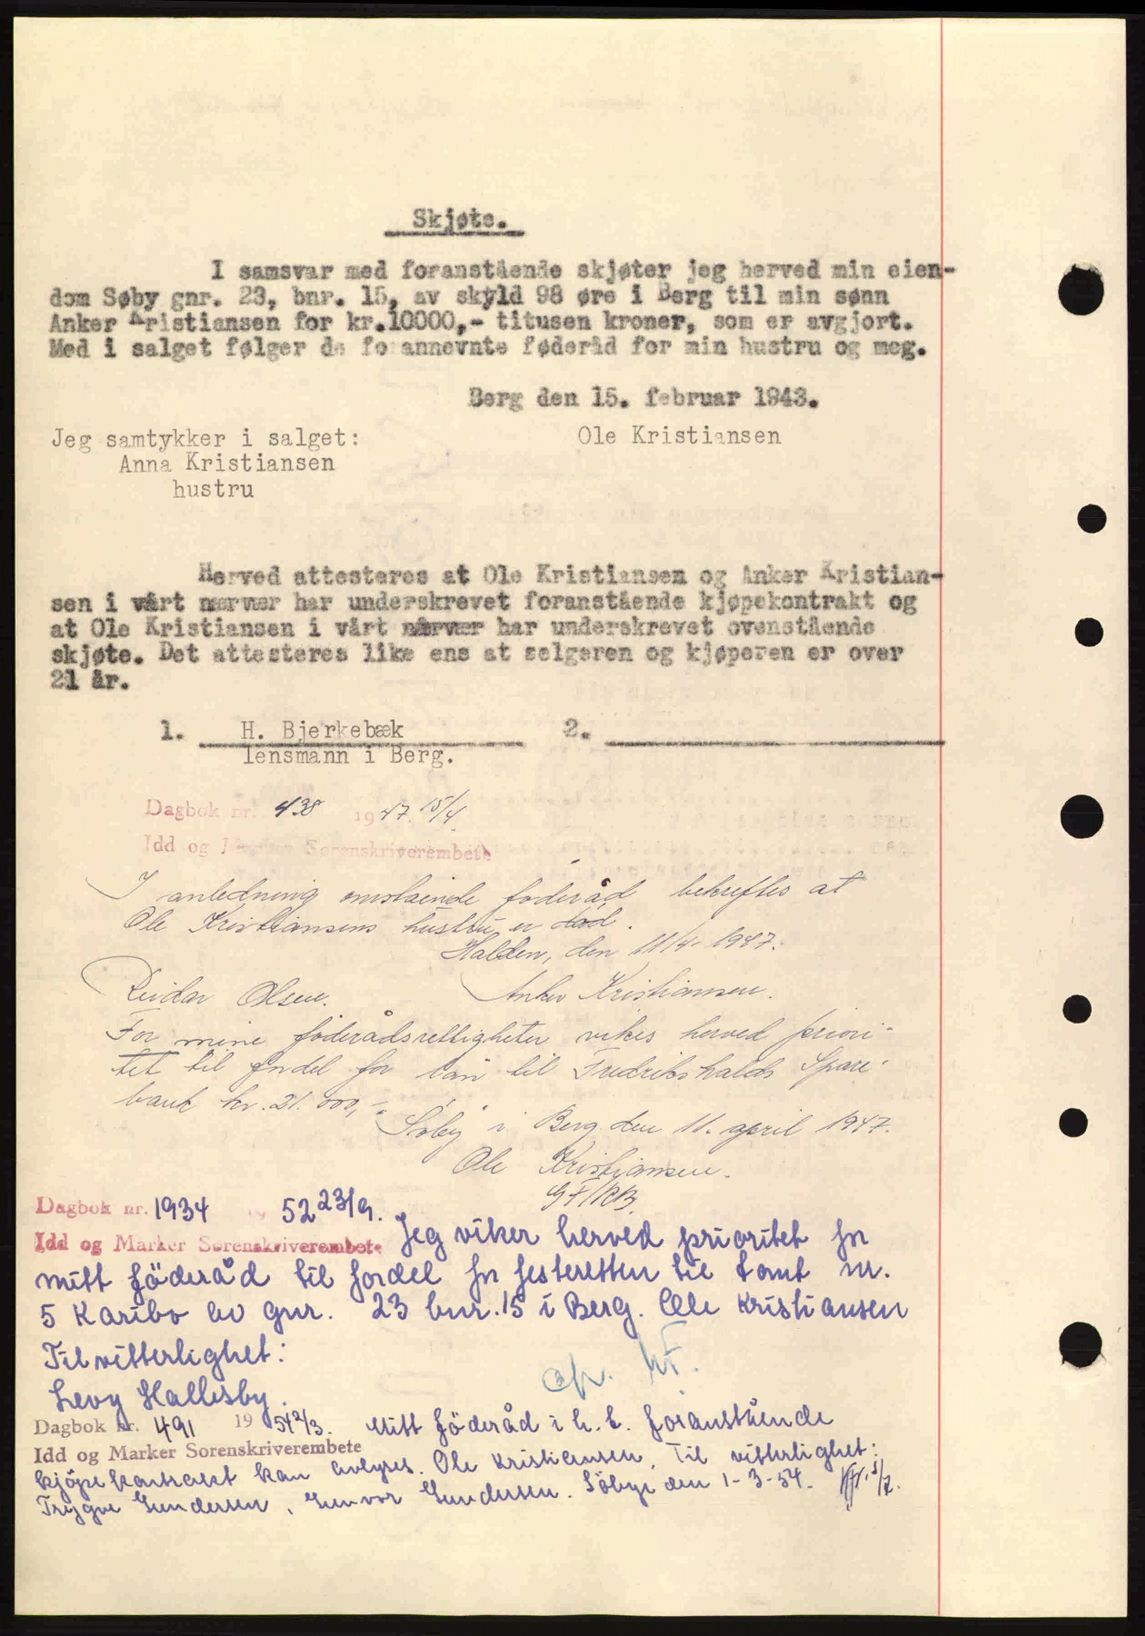 Skjøte.
I samsvar med foranstående skjøter jeg herved min eien-
dom Søby gnr. 23, bnr. 15, av skyld 98 øre i Berg til min sønn
Anker Kristiansen for kr.10000,- titusen kroner, som er avgjort.
Med i salget følger de forannevnte føderåd for min hustru og meg.
Berg den 15. februar 1943.
Jeg samtykker i salget:
Ole Kristiansen
Anna Kristiansen
hustru
Herved attesteres at Ole Kristiansen og Anker Kristian-
sen i vårt nærvær har underskrevet foranstående kjøpekontrakt og
at Ole Kristiansen i vårt nærvær har underskrevet ovenstående
skjøte. Det attesteres like ens at selgeren og kjøperen er over
21 år.
1. H. Bjerkebæk 2.
lensmann i Berg.
Dagbok nr. 438 1947 15/4
Idd og Marker Sorenskriverembete
I anledning omstående føderåd bekreftes at
Ole Kristiansens hustru er død.
Halden, den 11/4 1947.
Reidar Olsen. Anker Kristiansen.
For mine föderådsrettigheter vikes herved priori-
tet til fordel for lån til Fredrikshalds Spare-
bank kr. 21.000,-
"Søby" i Berg den 11. april 1947.
Ole Kristiansen.
Dagbok nr. 1934 19 52 23/9.
Idd og Marker Sorenskriverembete Jeg viker herved prioritet for
mitt föderåd til fordel for festeretten til tomt nr.
5 Karibo av gnr. 23 bnr. 15 i Berg. Ole Kristiansen
Til vitterlighet:
Levy Hallesby.
Dagbok nr. 491 19 54 2/3. Mitt föderåd i h. t. foranstående
Idd og Marker Sorenskriverembete
kjöpekontrakt kan avlyses. Ole Kristiansen. Til vitterlighet:
Trygve Gundersen, Gunvor Gundersen. Söbye den 1-3-54.